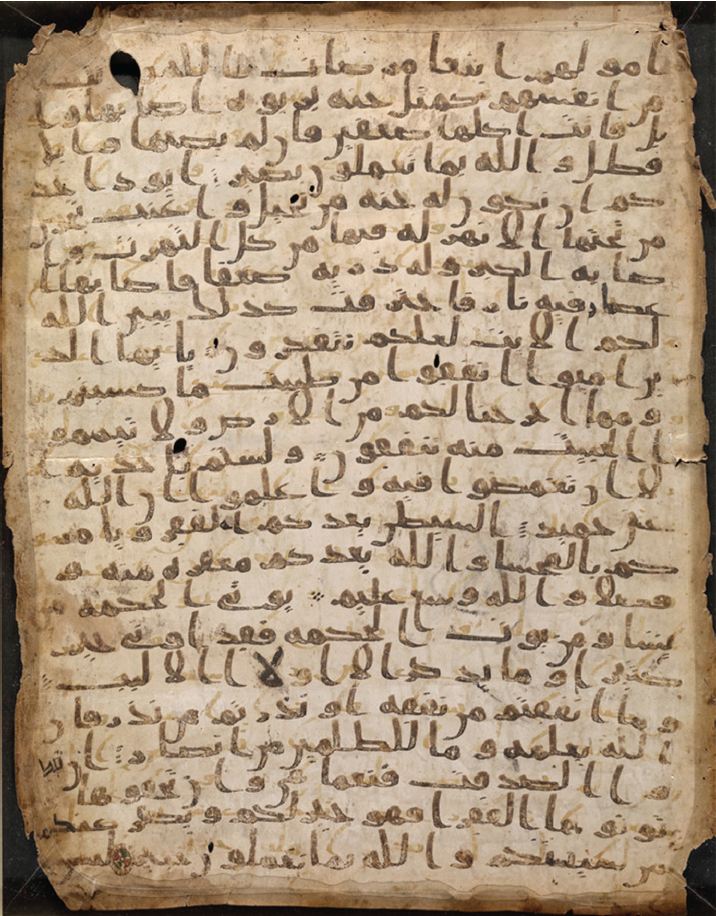 امولهم ابتغا مرضات الله وتثبيتا
من انفسهم كمثل جنة بربوة اصابها وا
بل فاتت اكلها ضعفين فان لم يصبها وابل
فطل والله بما تعملون بصير ايود احد
كم ان تكون له جنة من نخيل واعنب تجري
من تحتها الانهر له فيها من كل الثمرت وا
صابه الكبر وله ذرية ضعفا فاصابها ا
عصار فيه نار فاحترقت كذلك يبين الله
لكم الايت لعلكم تتفكرون يايها الذ
ين امنوا انفقوا من طيبت ما كسبتم
ومما اخرجنا لكم من الارض ولا تيممو
ا الخبيث منه تنفقون ولستم باخذيه ا
لا ان تغمضوا فيه واعلموا ان الله
غني حميد الشيطن يعدكم الفقر ويامر
كم بالفحشا والله يعدكم مغفرة منه و
فضلا والله وسع عليم يوتي الحكمة من
يشا ومن يوت الحكمة فقد اوتي خير
كثيرا وما يذكر الا اولا الالبب
وما انفقتم من نفقة او نذرتم من نذر فان
الله يعلمه وما للظلمين من انصار ان تبد
وا الصدقت فنعما هي وان تخفوها و
توتوها الفقرا فهو خير لكم ويكفر عنكم
من سيتكم والله بما تعملون خبير ليس